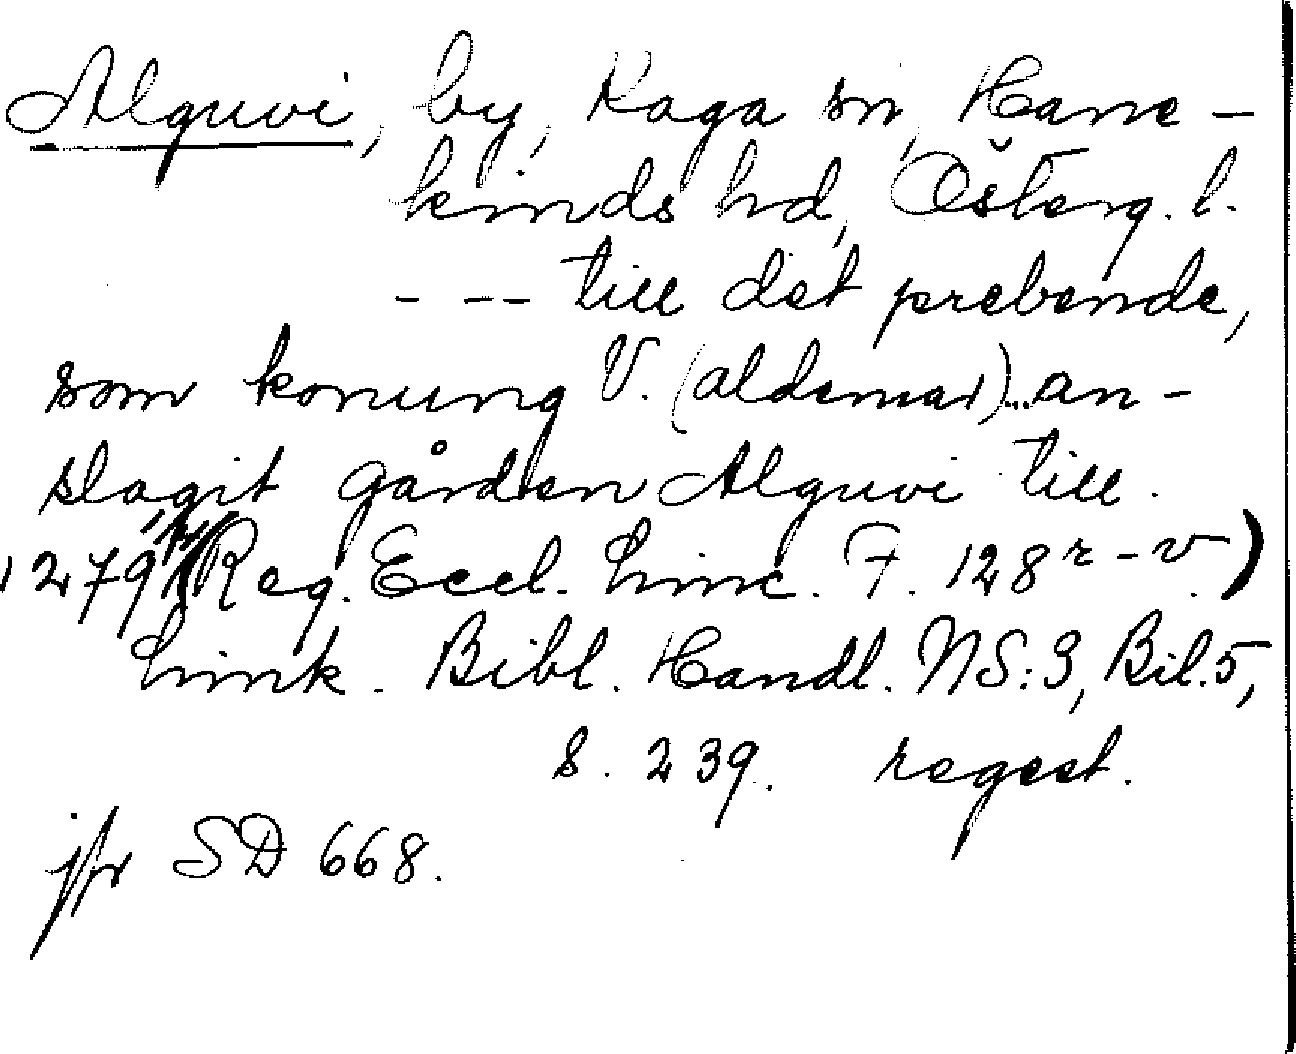 Alguvi, by, Kaga sn, Hane-
kinds hd, Österg. l.
- -- till det prebende,
som konung V. (aldemar)...an-
slagit gården Alguvi till.
1279 (Reg. Eccl. Linc. F. 128 r-v.)
Link. Bibl. Handl. NS:3, Bil.5,
s. 239. regest.
jfr SD 668.